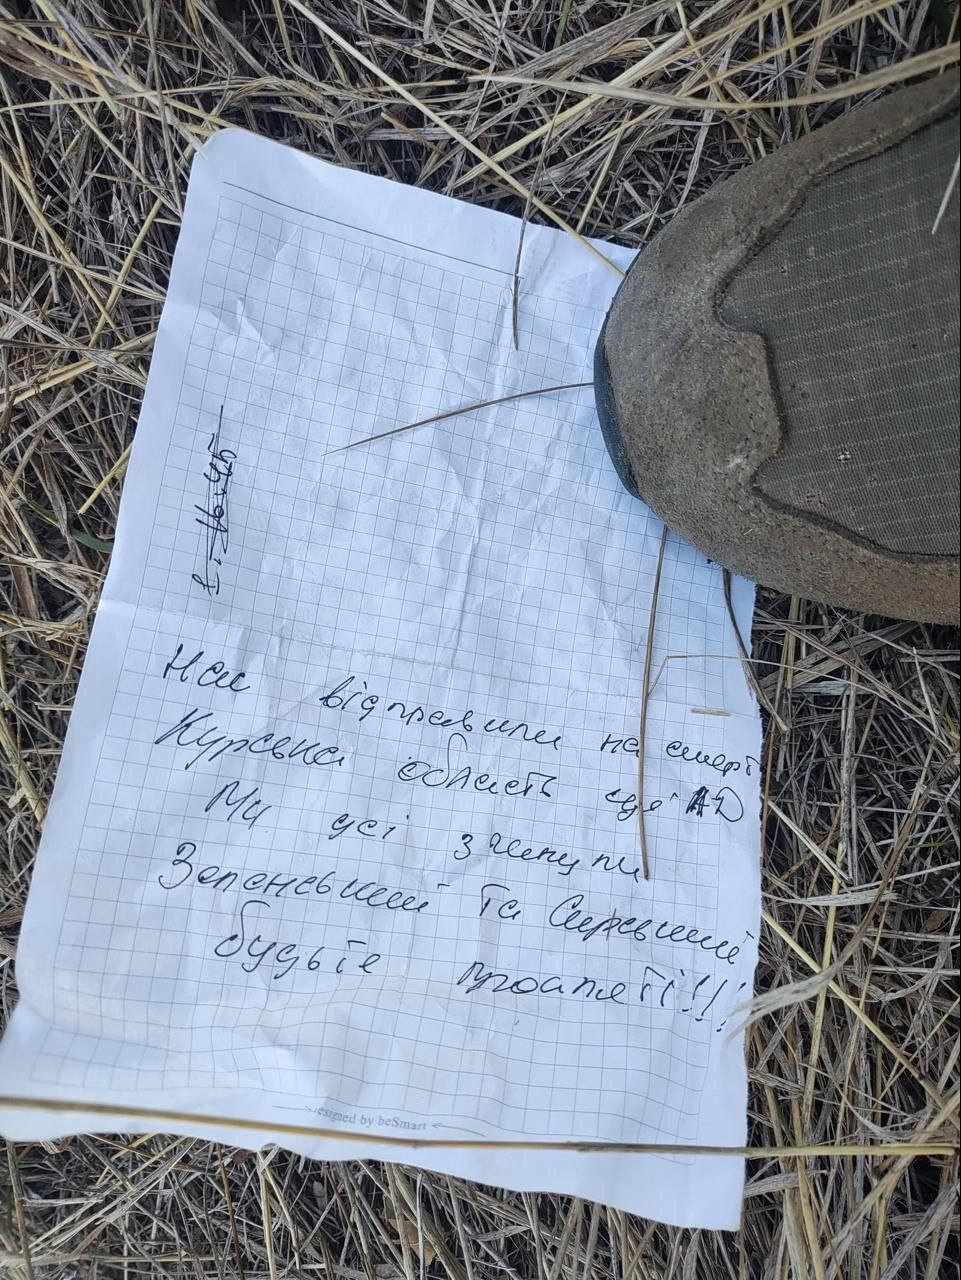 Нас відправили на смерт
Курська область це АD
Ми усі згинули
Зеленський та Сирський
будьте прокляті!!!
designed by beSmart